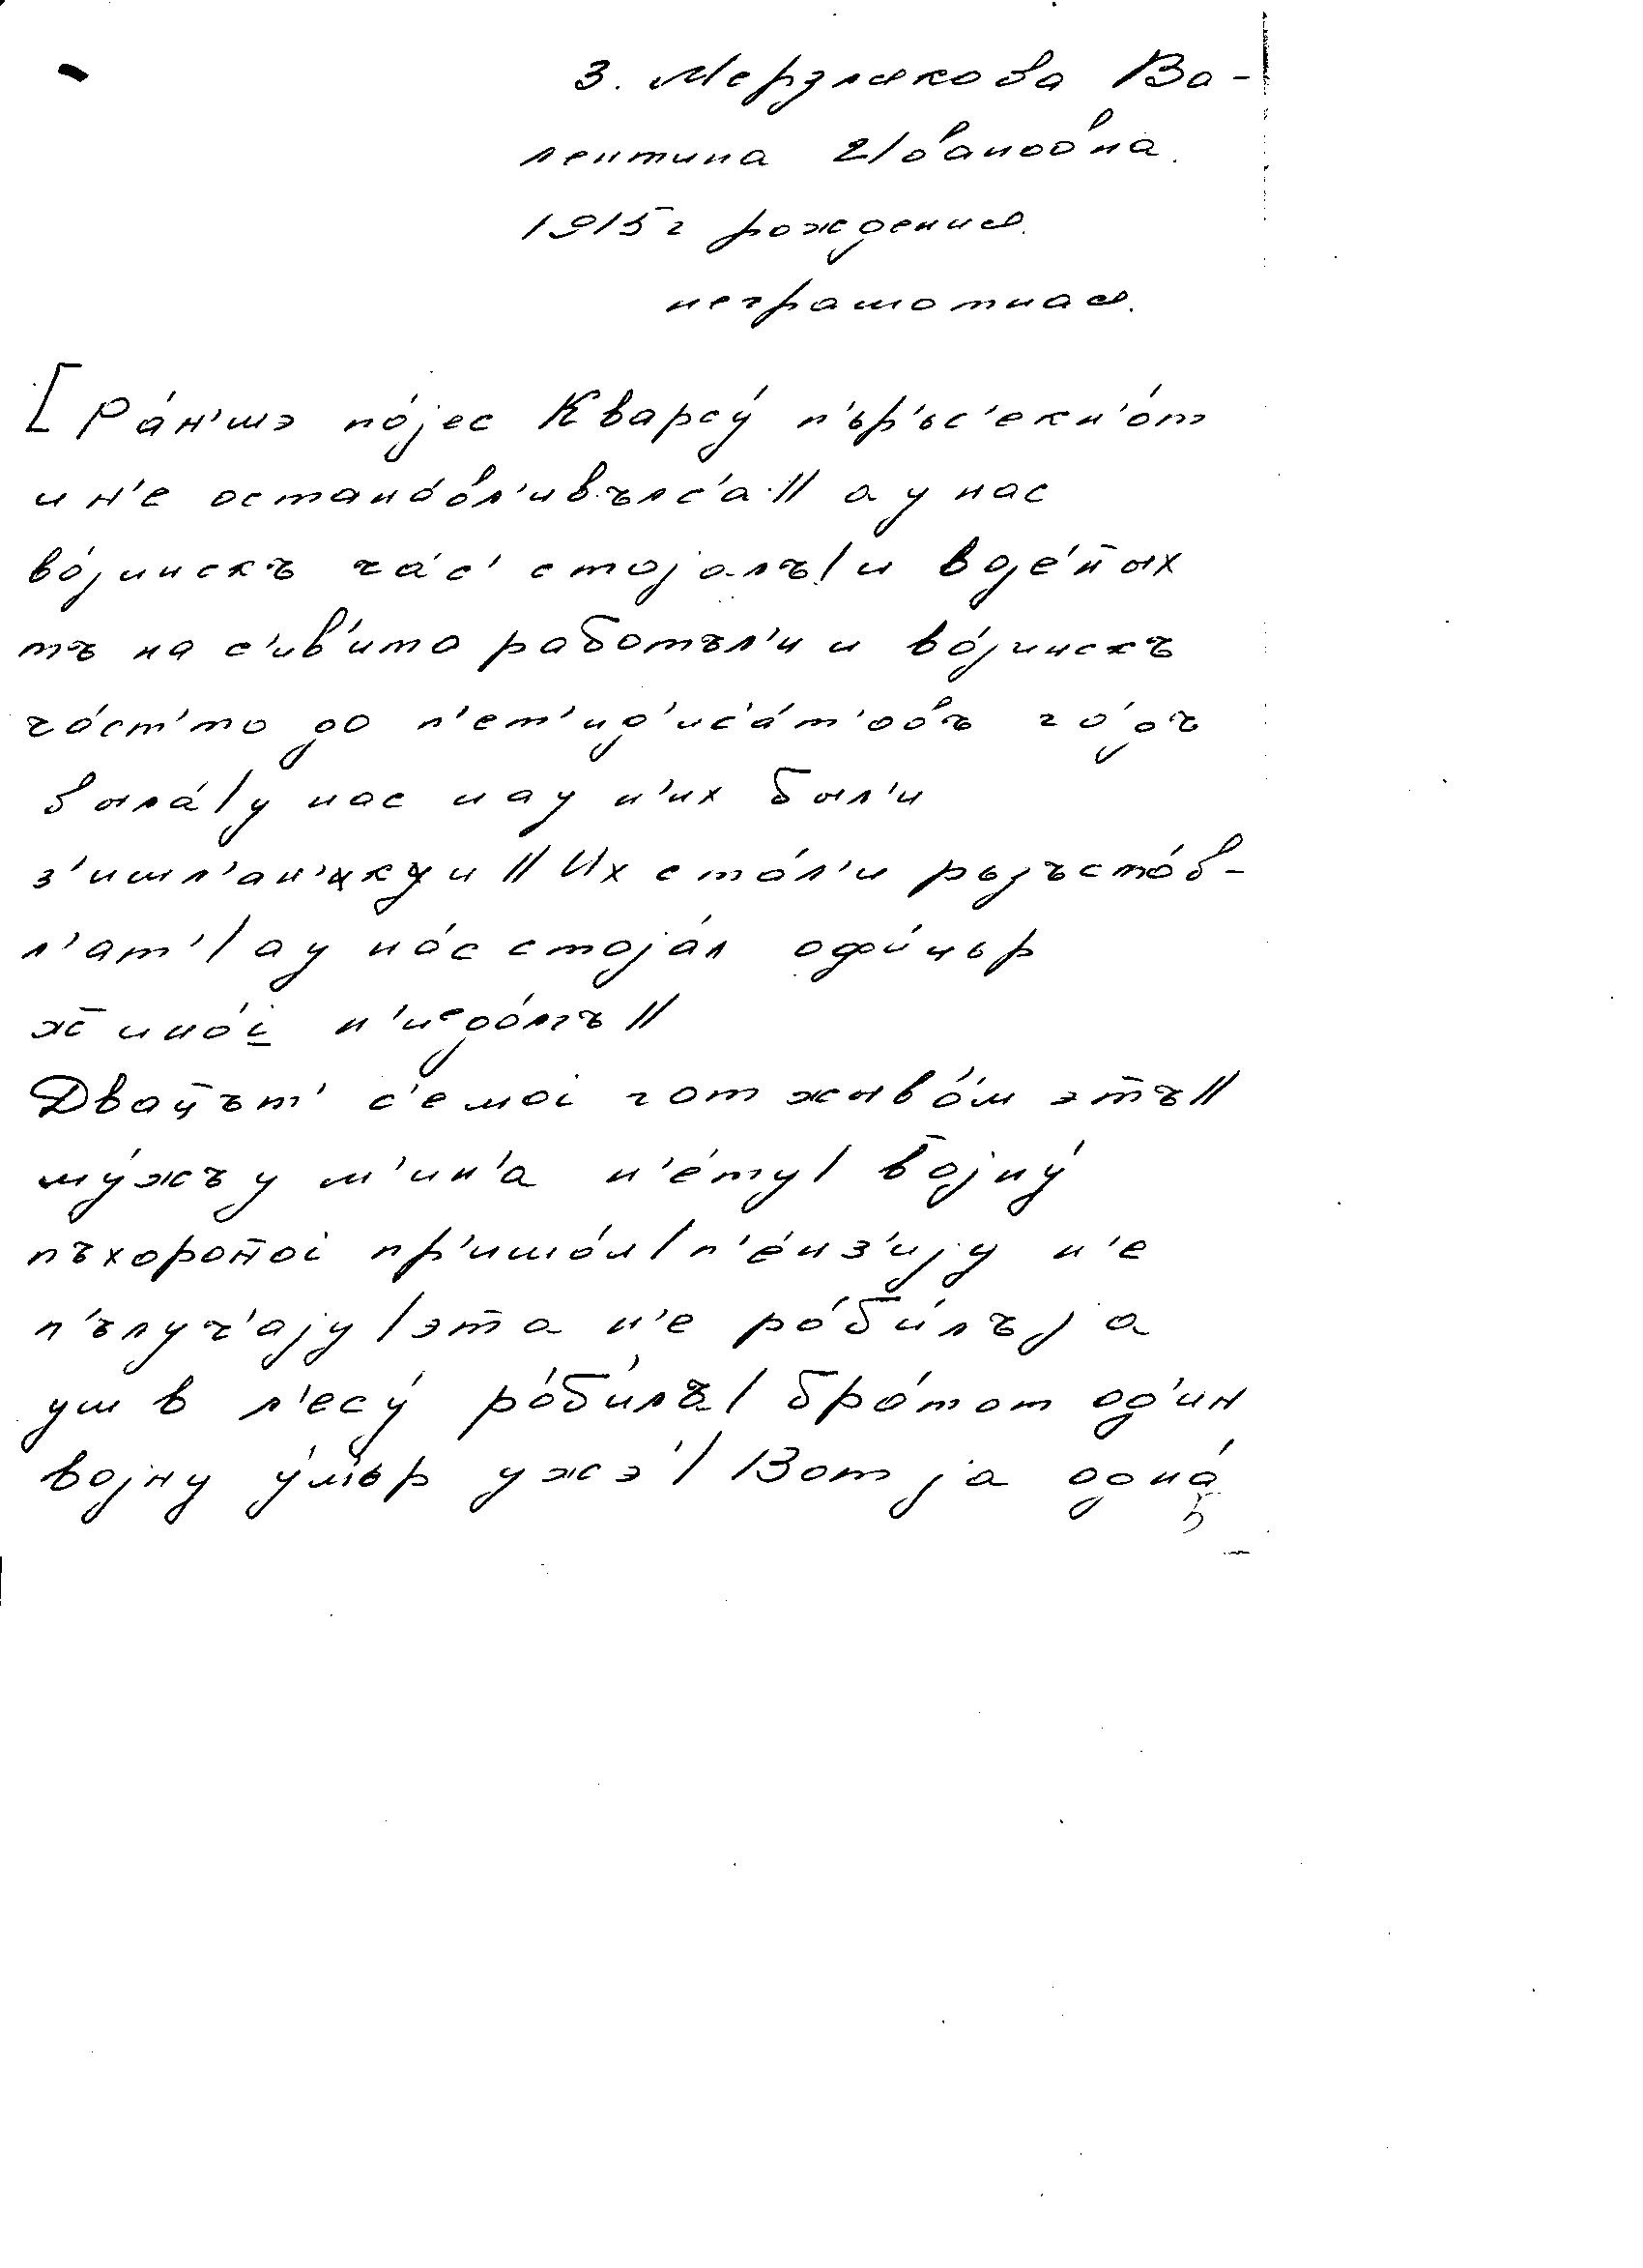 3. Мерзлякова Ва-
лентина Ивановна.
1915 г рождения.
неграмотная.
[Ра́н'шэ по́jес Кварсу́ п'ър'ьс'екн'о́т
и н'е остано́вл'ивълс'а // а у нас
во́jинскъ ча́с' стоjалъ / и воjе́н̄ых
тъ на с'ив'ито работъл'и и во́jинскъ
ча́ст'то до п'ет'ид'ис'а́т'овъ го́дъ
была́ / у нас на у н'их был'и
з'ишл'ан'к'и // Их ста́л'и ръзъста́в-
л'ат' / а у на́с стоjа́л офи́цьр
ж̄ино́і н'иедо́лгъ //
Двац̄ът' с'емоі гот жыво́м эт̄ъ //
му́жъ у м'ин'а н'е́ту / в̄оjну́
пъхорон̄оі пр'ишо́л / п'е́нз'иjу н'е
п'ълуч'аjу / эт̄а н'е ро́б'илъ jа
уш в л'есу́ ро́б'илъ / бра́тот од'ин
воjну у́м'ьр ужэ́ / Вот jа одна́
5